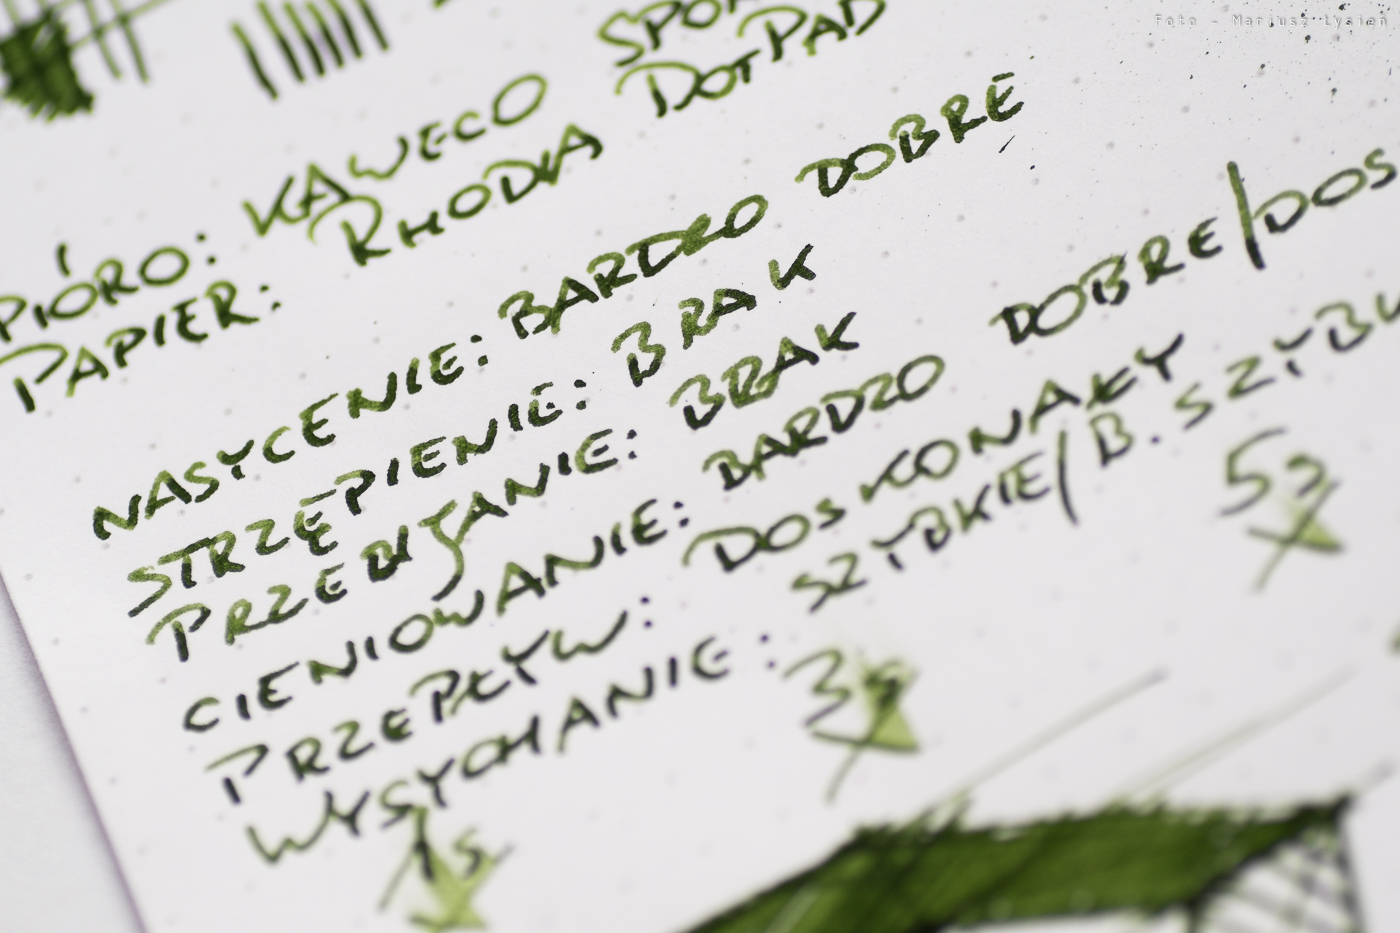 Foto - Mariusz Łysień
PIÓRO: KAWECO SPOR
PAPIER: RHODIA DOTPAD
NASYCENIE: BARDZO DOBRE
STRZĘPIENIE: BRAK
PRZEBIJANIE: BRAK
CIENIOWANIE: BARDZO DOBRE/DOS
PRZEPŁYW: DOSKONAŁY
WYSYCHANIE: SZYBKIE/B. SZYBK
1s 3s 5s